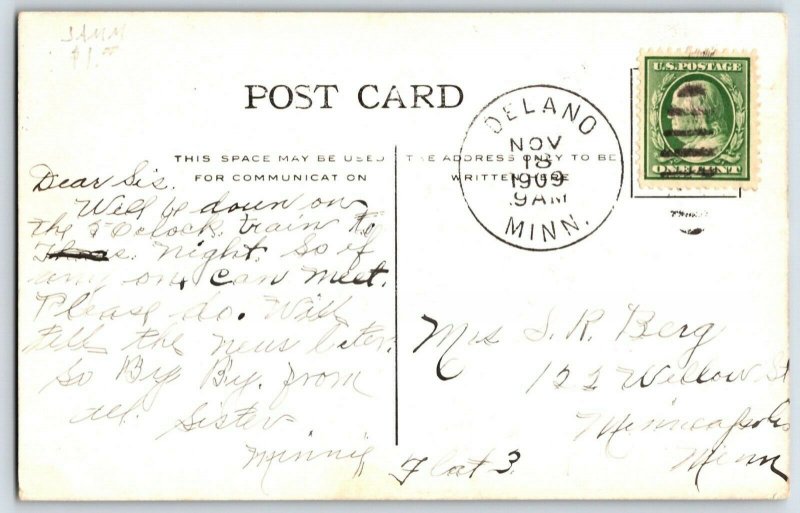 $1.00
POST CARD
DELANO
NOV
18
1909
9AM
MINN.
U.S. POSTAGE
ONE CENT
THIS SPACE MAY BE USED
FOR COMMUNICATION
THE ADDRESS ONLY TO BE
WRITTEN HERE
Dear Sis.
Will be down on
the Oclock train to
night. So if
any one can meet.
Please do. Will
tell the news later.
So By By. from
all. Sister
Minnie
Mrs S. R. Berg
Willow St
Minneapolis
Minn
Flat 3.